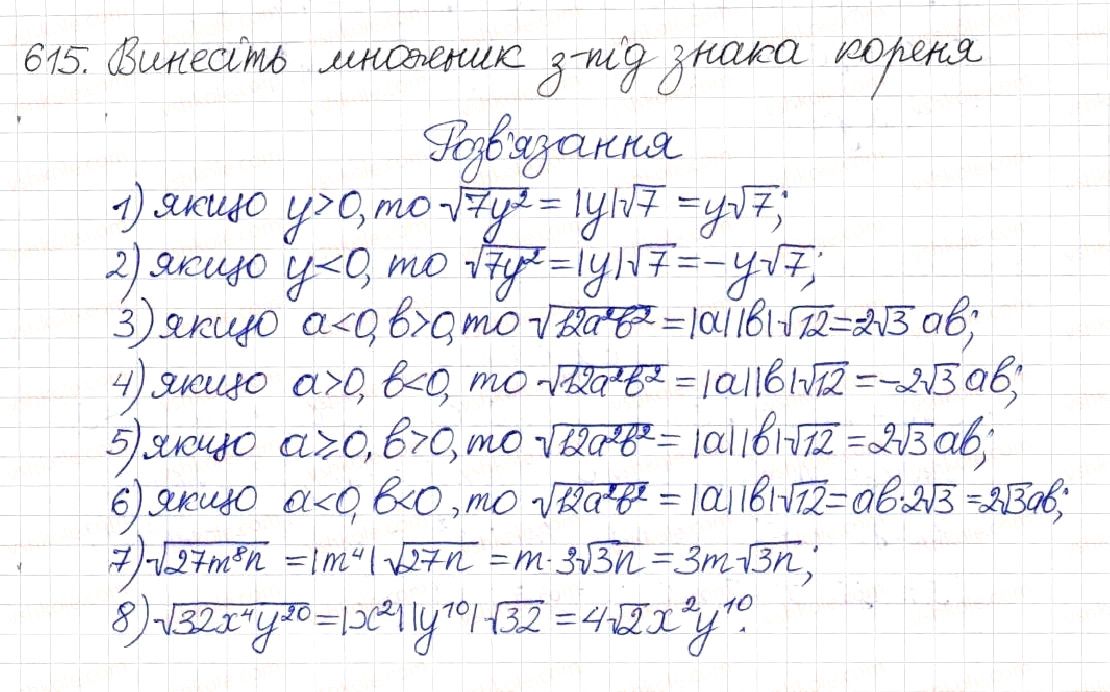 615. Винесіть множеник з-під знака кореня
Розв'язання
1) якщо y>0, то √7y² = |y|√7 = y√7;
2) якщо y<0, то √7y² = |y|√7 = -y√7;
3) якщо a<0, b>0, то √12a²b² = |a||b|√12 = 2√3 ab;
4) якщо a>0, b<0, то √12a²b² = |a||b|√12 = -2√3 ab;
5) якщо a≥0, b>0, то √12a²b² = |a||b|√12 = 2√3 ab;
6) якщо a<0, b<0, то √12a²b² = |a||b|√12 = ab·2√3 = 2√3ab;
7) √27m⁸n = |m⁴|√27n = m·3√3n = 3m√3n;
8) √32x⁴y²⁰ = |x²||y¹⁰|√32 = 4√2x²y¹⁰.